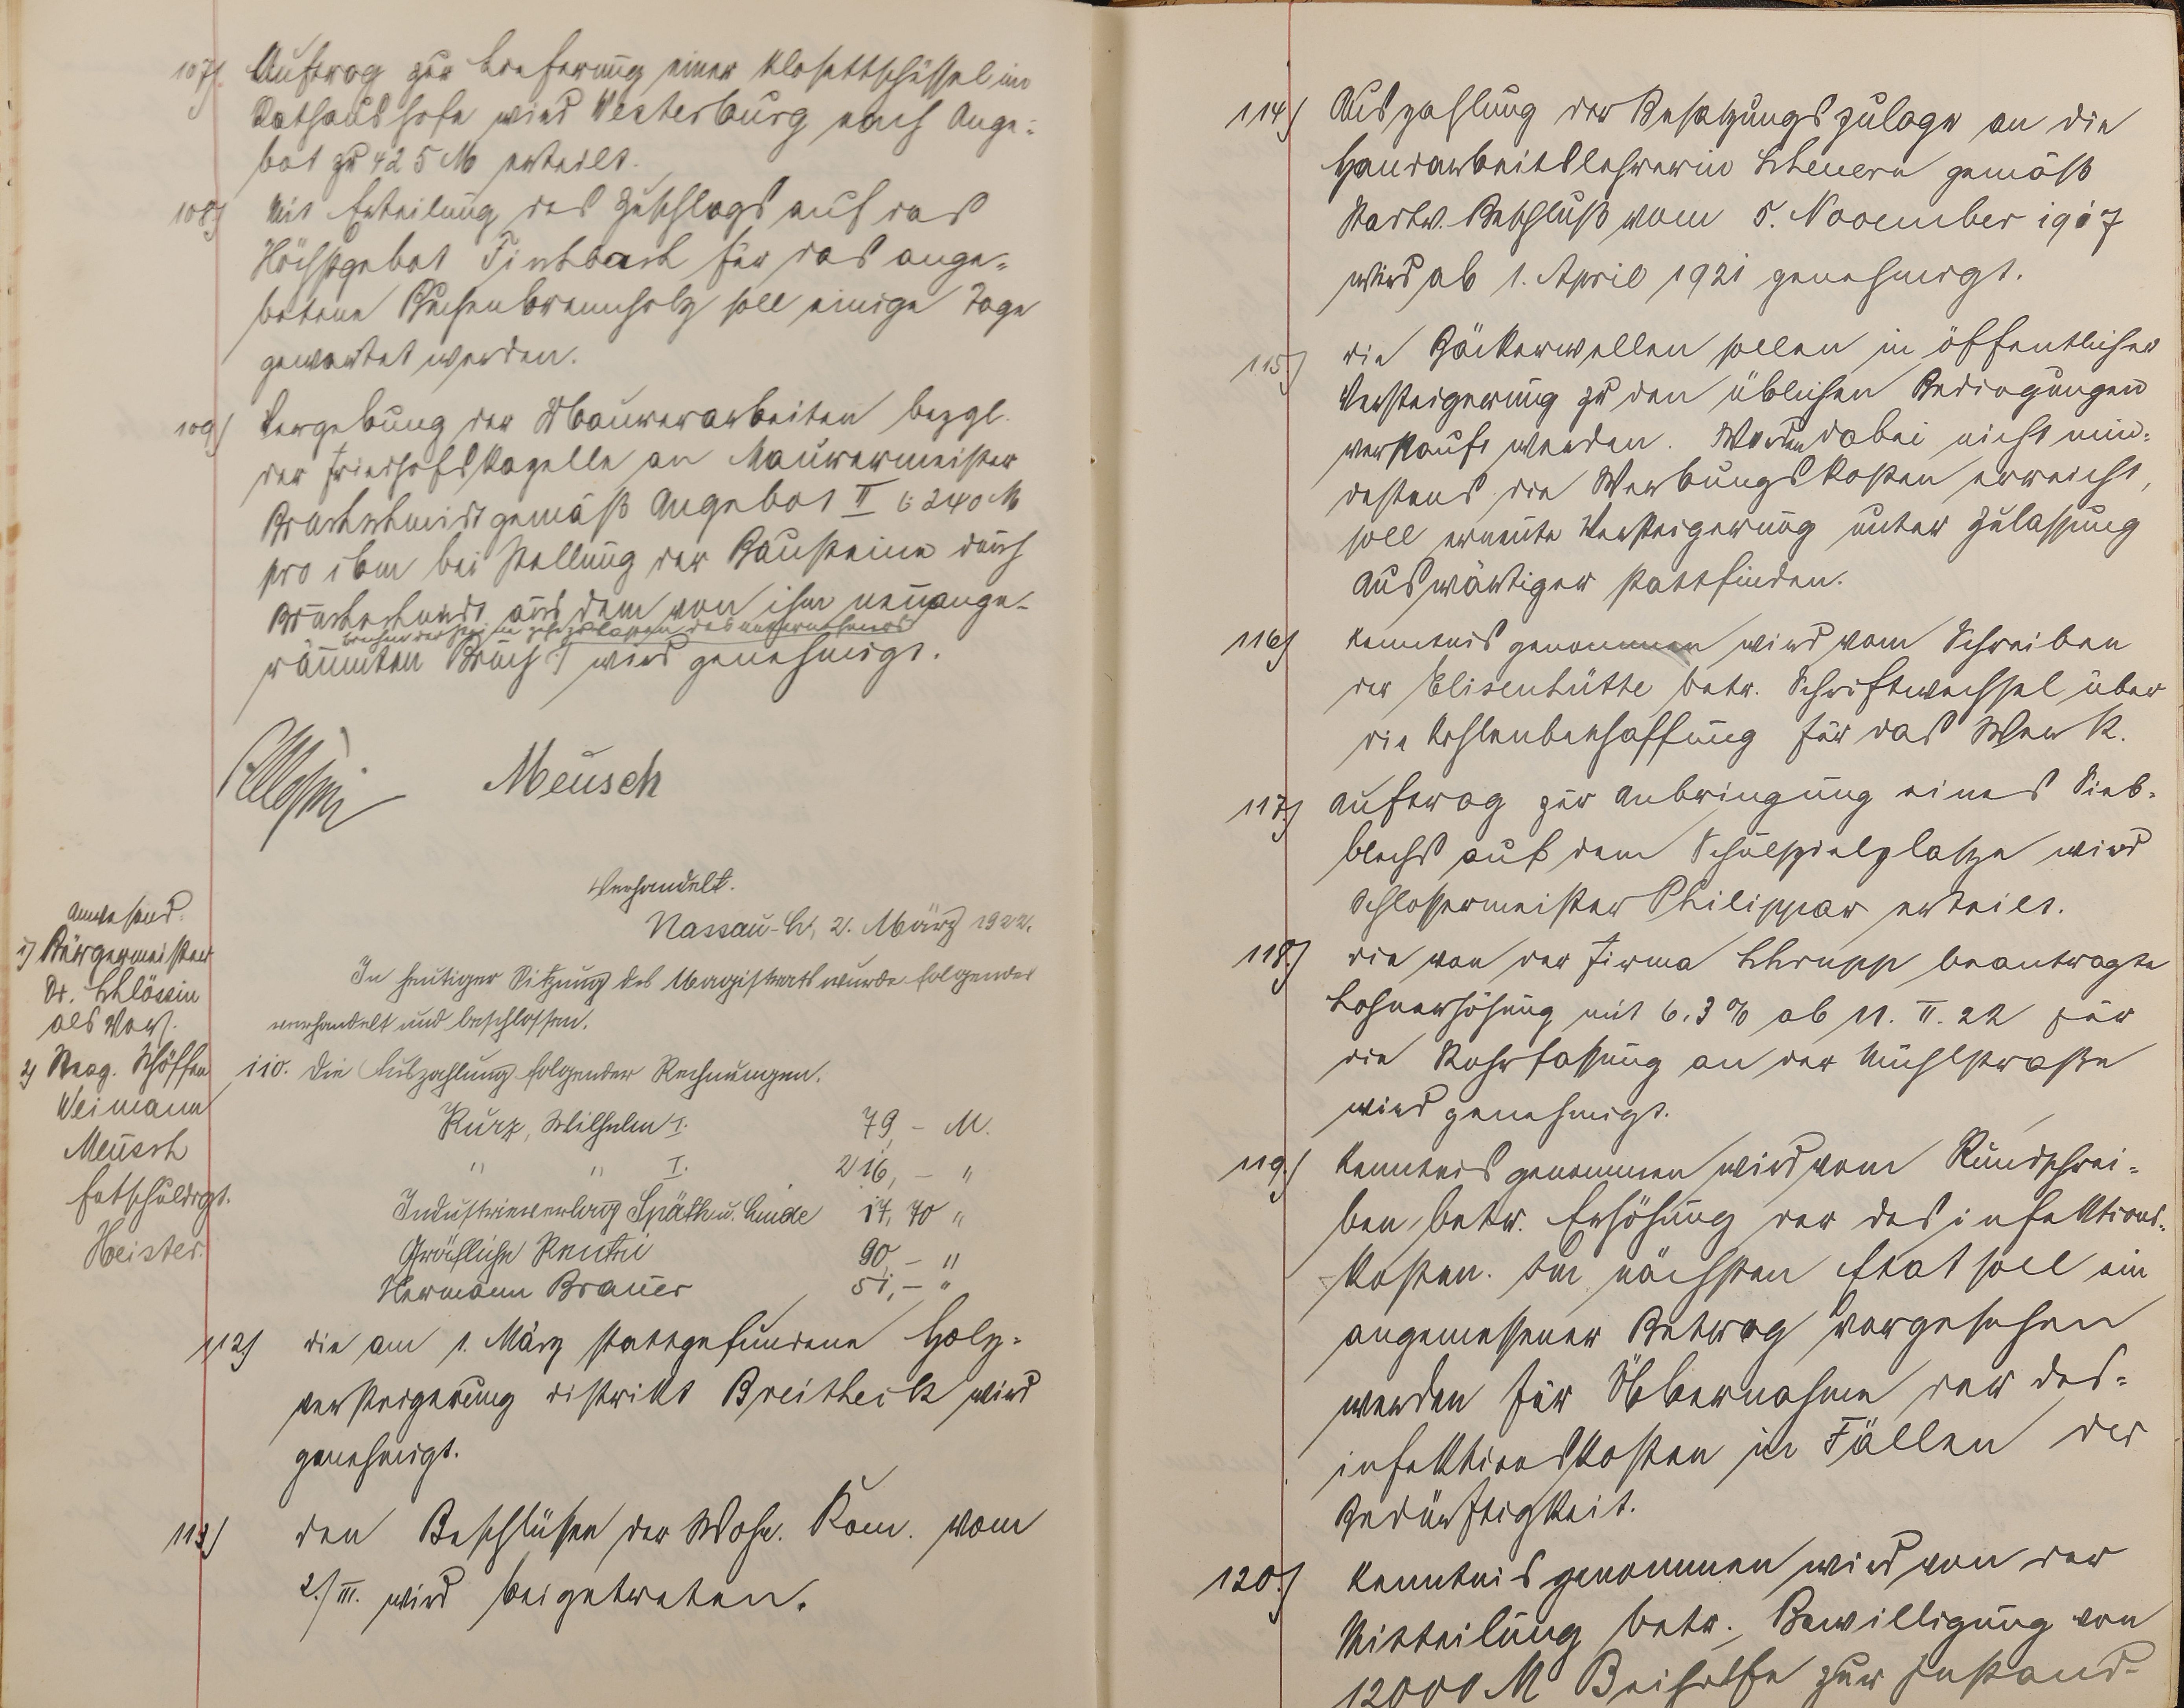 107) Auftrag zur Lieferung einer Klosettschüssel im
Rathaushofe wird Westerburg nach Ange-
bot zu 425 M erteilt.
108) Mit Erteilung des Zuschlags auf das
Höchstgebot für das ange-
botene Buchenbrennholz soll einige Tage
gewartet werden.
109) Vergebung der Maurerarbeiten bezgl.
der Friedhofskapelle an Maurermeister
gemäß Angebot II 240 M
pro cbm bei Stellung der Bausteine durch
aus dem von ihm neuange-
räumten Bruch wird genehmigt.
Meusch
Verhandelt.
Nassau, 2. März 1922.
In heutiger Sitzung des Magistrats wurde folgendes
verhandelt und beschlossen.
Anwesend:
1) Bürgermeister
Dr. Schlössin
als Vors.
2) Mag. Schöffen
Weimann
Meusch
Entschuldigt.
Heister.
110. Die Auszahlung folgender Rechnungen.
Kurz, Wilhelm I. 79,- M.
" " I. 216,- "
Industrieverlag Späth u. Linde 17,70 "
Gräfliche Rentei 90,- "
Hermann Brauer 51,- "
112) die am 1. März stattgefundene Holz-
versteigerung Distrikt Breitheck wird
genehmigt.
113) den Beschlüssen der Wohn. Kom. vom
2./III. wird beigetreten.
114) Auszahlung der Besatzungszulage an die
Handarbeitslehrerin Scheuern gemäß
Stadtv. Beschluß vom 5. November 1917
wird ab 1. April 1921 genehmigt.
115) die Bäckerwellen sollen in öffentlicher
Versteigerung zu den üblichen Bedingungen
verkauft werden. Werden dabei nicht min-
destens die Werbungskosten erreicht,
soll erneute Versteigerung unter Zulassung
Auswärtiger stattfinden.
116) Kenntnis genommen wird vom Schreiben
der Elisenhütte betr. Schriftwechsel über
die Kohlenbeschaffung für das Werk.
117.) Auftrag zur Anbringung eines Sieb-
blechs auf dem Schulspielplatze wird
Schlossermeister Philippar erteilt.
118.) die von der Firma Schrupp beantragte
Lohnerhöhung mit 6,3% ab 11. II. 22 für
die Rohrfassung an der Mühlstraße
wird genehmigt.
119.) Kenntnis genommen wird vom Rundschrei-
ben betr. Erhöhung der Desinfektions-
kosten. Im nächsten Etat soll ein
angemessener Betrag vorgesehen
werden für Übernahme der Des-
infektionskosten in Fällen der
Bedürftigkeit.
120.) Kenntnis genommen wird von der
Mitteilung betr. Bewilligung von
12000 M Beihilfe zur Instand-